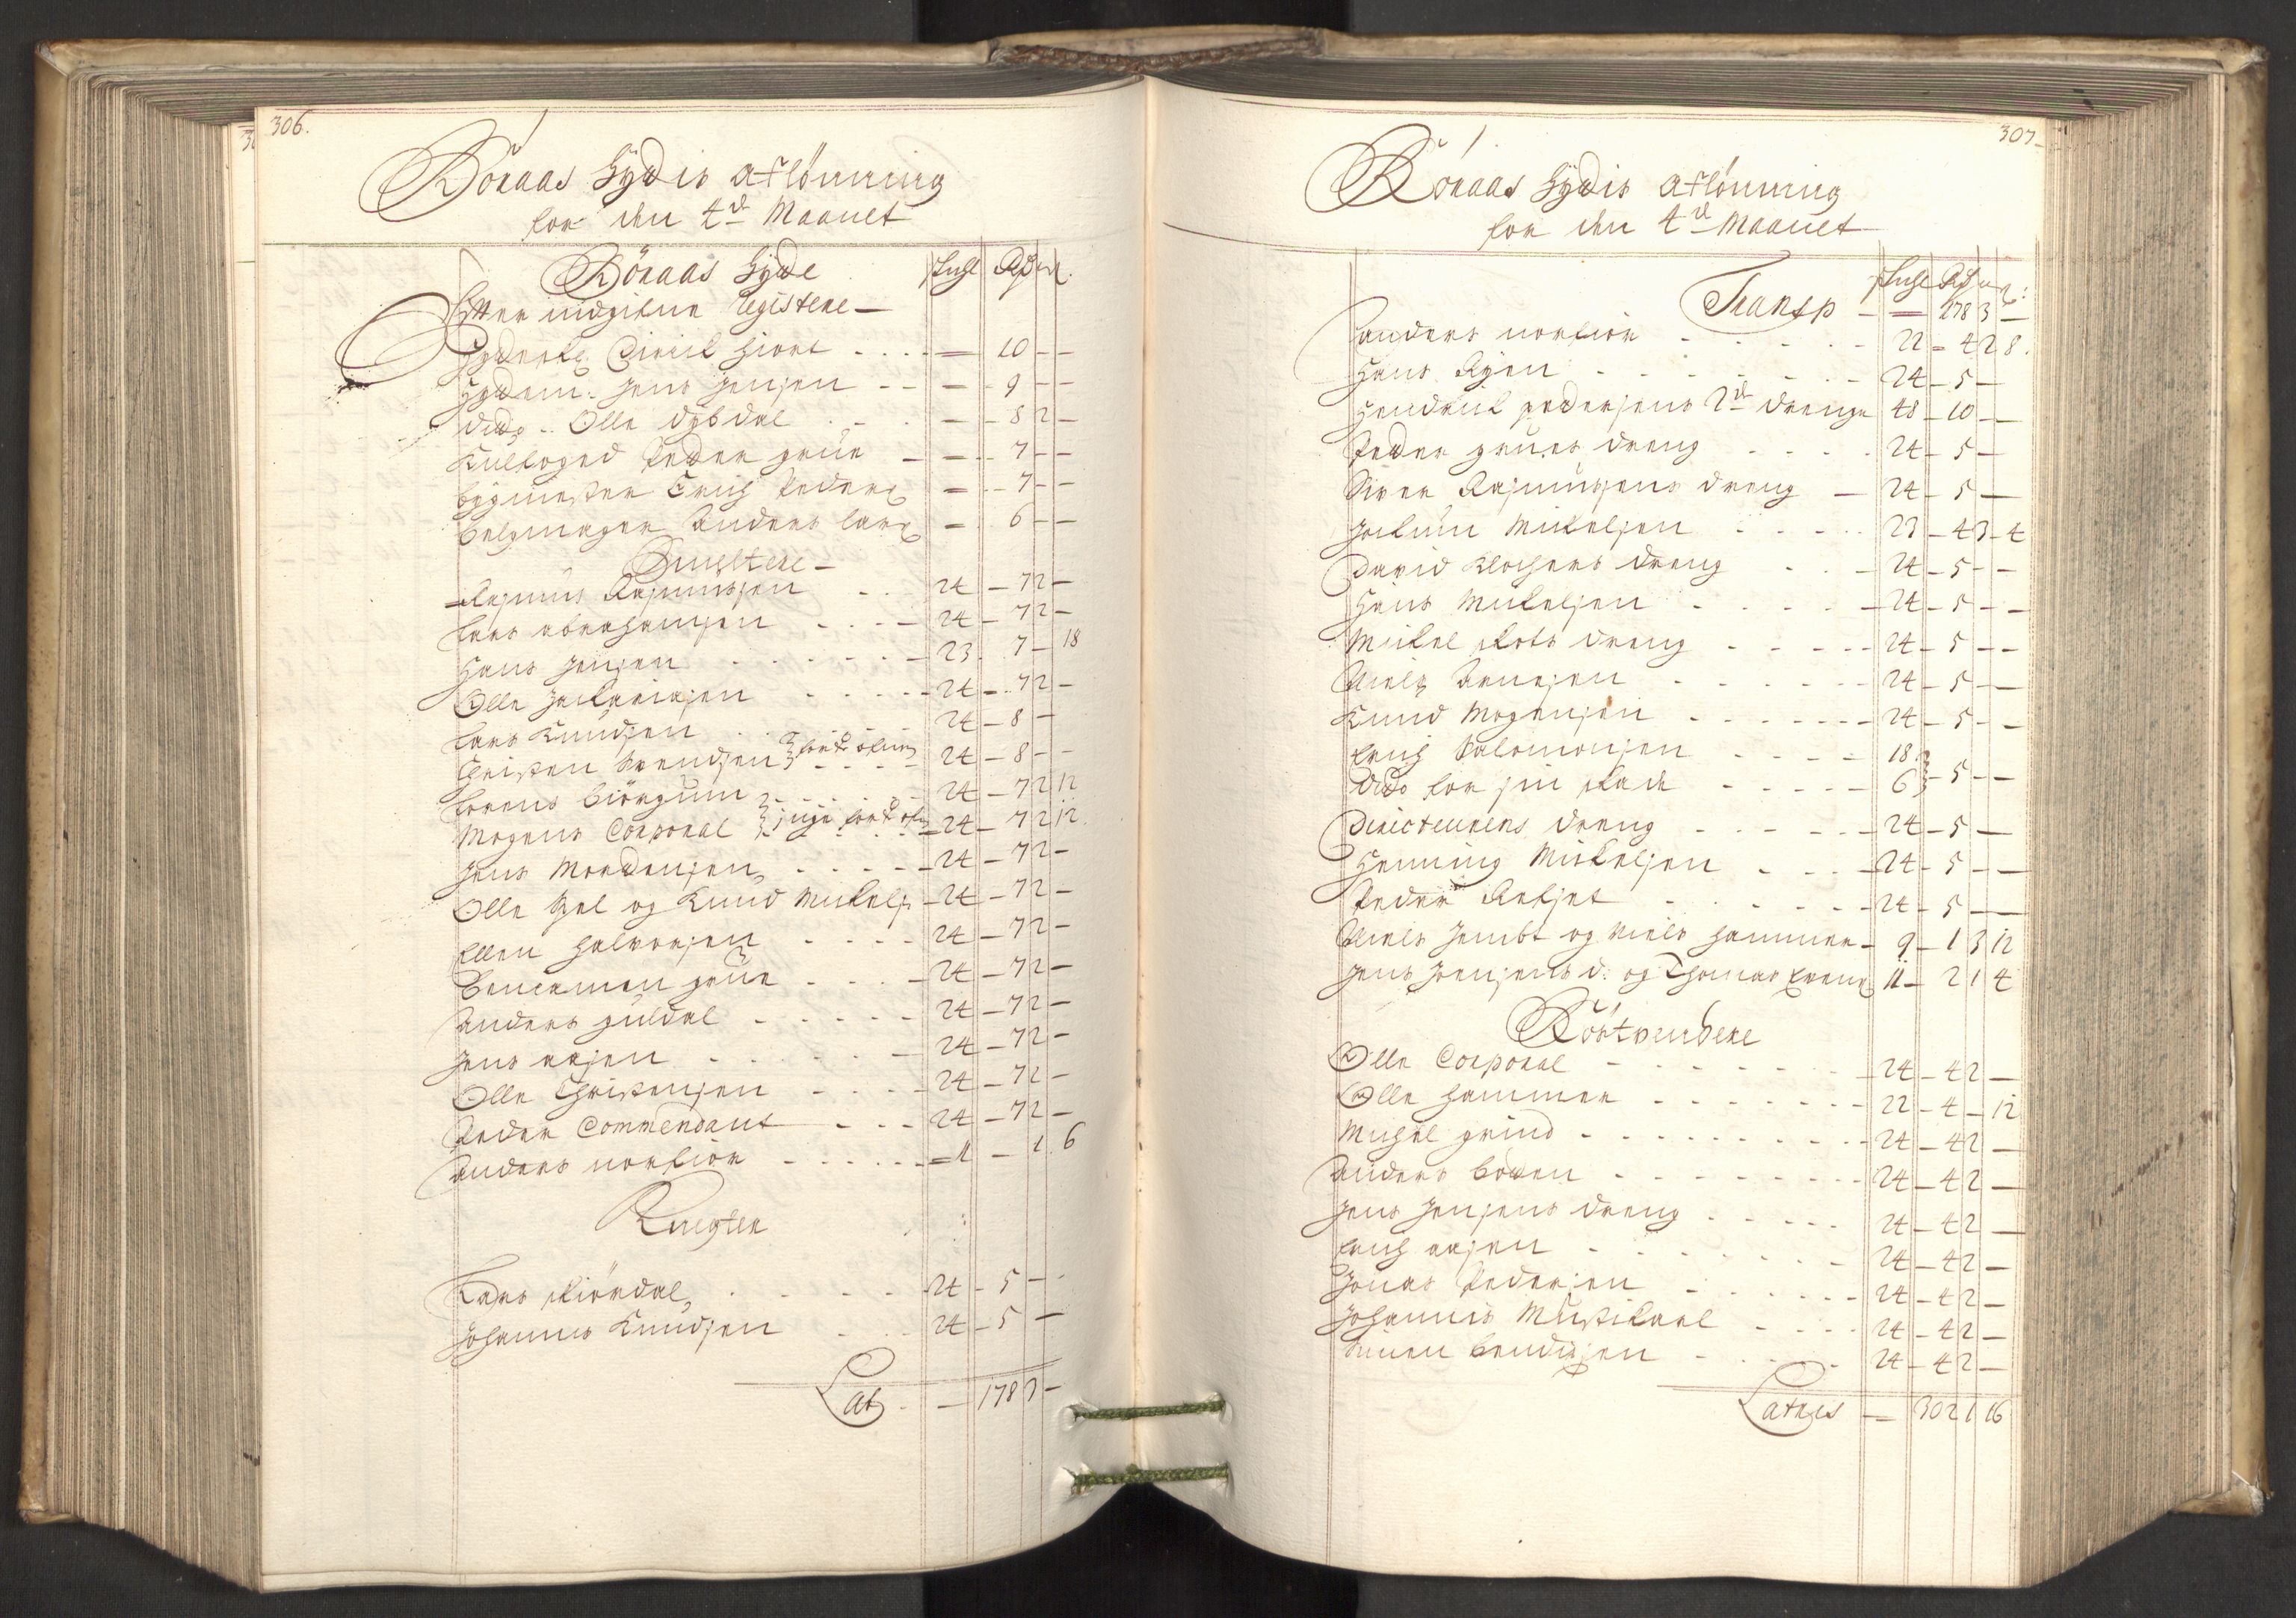 306.
Röraas Hÿdis aflönning
for den 4de Maanet
Röraas Hÿde
Rd
Efter indgifne Registere —
Hÿdschr. Hiort . . . . — 10 — —
Hÿdem: Jens Jensen - - — 9 — —
dido - Olle Dybdal . . . — 8 2 —
Kulfoged Peder grüe — — 7 — —
bygmester Erich Peders — 7 — —
belgmager Anders lars — 6 — —
Smeltere —
Rasmus Rasmussen . . 24 — 7 2 —
Lars abrahamsen . . . — 24 — 7 2 —
Hans Jensen . . . . . — 23 . 7 — 18
Olle Zachariasen . . . . . 24 — 7 2 —
Lars Knudsen . . . . . 24 — 8 —
Christen Svendsen . . . . 24 — 8 — —
Lorens biörgum . . . . . 24 — 7 2 12
Mogens Corporal 24 — 7 2 12
Jens Mordensen . . . . . 24 — 7 2 —
Olle og Knud Mickels — 24 — 7 2 —
Ellen Halvorsen . . . . 24 — 7 2 —
Bencamen grüe . . . . 24 — 7 2 —
Anders guldal . . . . . 24 — 7 2 —
Jens arsen . . . . . . 24 — 7 2 —
Olle Christensen . . . . 24 — 7 2 —
Peder Commendant . . . 24 — 7 2 —
Anders norfiör . . . . . . 1 — 1 6
Knegter
Lars . . . . . 24 — 5 — —
Johannes Knudsen . . . 24 — 5 — —
Lat — 178 3 —
307
Röraas Hÿdis aflönning
for den 4de Maanet
Rd
Transp — — 178 3 —
Anders norfiör . . . . . 22 — 4 2 8
Hans Ryen . . . . . . 24 — 5 —
Hendrich pedersens 2de drenge 48 — 10 —
Peder grues dreng . . . . 24 — 5 —
Siver Rasmussens dreng — 24 — 5 —
Jochum Mickelsen . . . . 23 — 4 3 4
David Klochers dreng . . — 24 — 5 — —
Hans Mickelsen . . . . . 24 — 5 — —
Mickel dreng . . . . . 24 — 5 — —
Niels Arnesen . . . . . . 24 — 5 —
Knud Mogensen . . . . . . 24 — 5 — —
Erich Salomonsen . . . . 18
Dido for sin . . . . . 6 — 5 — —
Directeurens dreng . . . . 24 — 5 —
Henning Mickelsen . . . 24 — 5 — —
Peder . . . . . . 24 — 5 — —
Niels Jembt og Niels Hammer — 9 — 1 3 12
Jens Jensens d: og Thomas 11 — 2 1 4
Röstvendere
Olle Corporal . . . . . . 24 — 4 2 —
Olle Hammer . . . . . . . 22 — 4 — 12
Michel grind . . . . . . . . 24 — 4 2 —
Anders boden . . . . . . . 24 — 4 2 —
Jens Jensens dreng . . . . . 24 — 4 2 —
Erich arsen . . . . . . 24 — 4 2 —
Jonas Pedersen . . . . . . 24 — 4 2 —
Johannes . . . . 24 — 4 2 —
Simen bendixen . . . . . 24 — 4 2 —
Lateris — 302 1 16